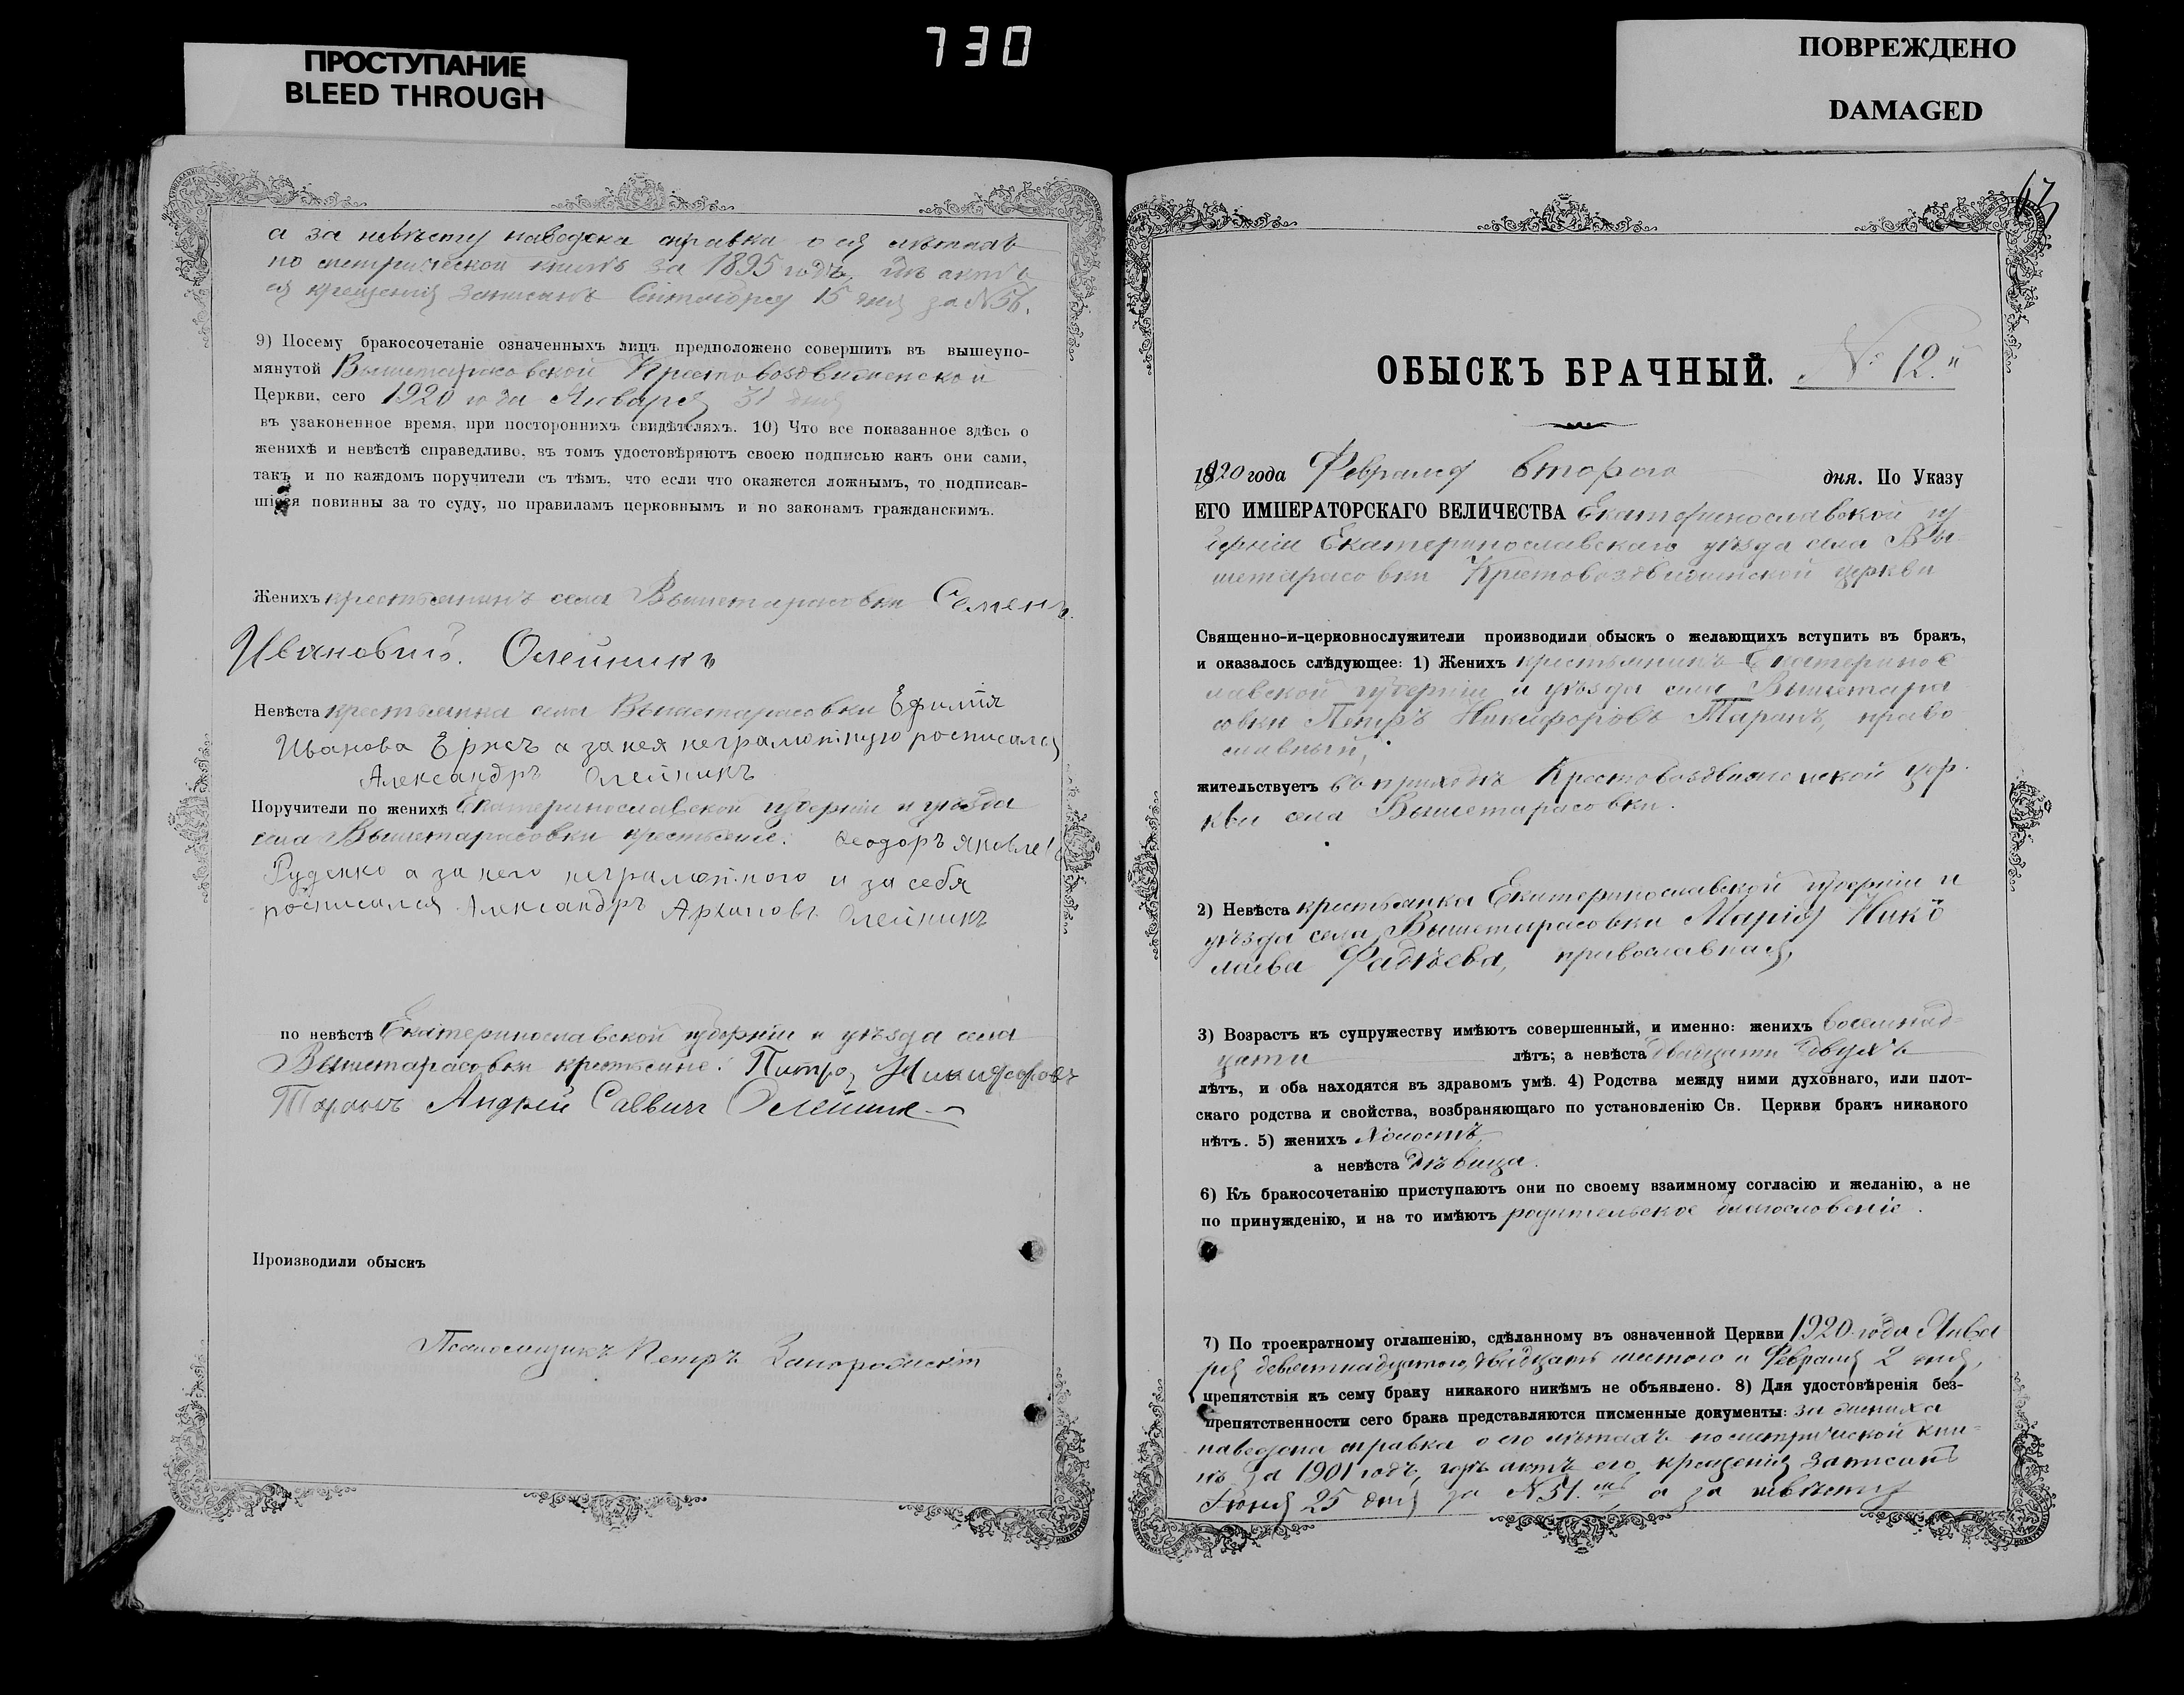 730
ПРОСТУПАНИЕ
BLEED THROUGH
ПОВРЕЖДЕНО
DAMAGED
а за невѣсту наведена справка о ея лѣтахъ
по метрической книгѣ за 1895 годъ, гдѣ актъ
ея крещенія записанъ Сентября 15 дня за №56.
9) Посему бракосочетаніе означенныхъ лицъ предположено совершить въ вышеупо-
мянутой Вышетарасовской Крестовоздвиженской
Церкви, сего 1920 года Января 31 дня
въ узаконенное время, при постороннихъ свидѣтеляхъ. 10) Что все показанное здѣсь о
женихѣ и невѣстѣ справедливо, въ томъ удостовѣряютъ своею подписью какъ они сами,
такъ и по каждомъ поручители съ тѣмъ, что если что окажется ложнымъ, то подписав-
шіеся повинны за то суду, по правиламъ церковнымъ и по законамъ гражданскимъ.
Женихъ крестьянинъ села Вышетарасовки Семенъ
Ивановичъ. Олейникъ
Невѣста крестьянка села Вышетарасовки
Иванова а за нея неграмотную росписался
Александръ Олейникъ
Поручители по женихѣ Екатеринославской губерніи и уѣзда
села Вышетарасовки крестьяне: Ѳеодоръ Яковлевъ
Руденко а за него неграмотного и за себя
росписался Александръ Архиповъ Олейникъ
по невѣстѣ Екатеринославской губерніи и уѣзда села
Вышетарасовки крестьяне: Питро Никифоровъ
Таранъ Андрей Саввич Олейник
Производили обыскъ
Псаломщикъ Петръ Запорожскій
63
ОБЫСКЪ БРАЧНЫЙ. № 12.й
1920 года Февраля второго дня. По Указу
ЕГО ИМПЕРАТОРСКАГО ВЕЛИЧЕСТВА Екатеринославской гу-
берніи Екатеринославскаго уѣзда села Вы-
шетарасовки Крестовоздвиженской церкви
Священно-и-церковнослужители производили обыскъ о желающихъ вступить въ бракъ,
и оказалось слѣдующее: 1) Женихъ крестьянинъ Екатеринос
лавской губерніи и уѣзда села Вышетара
совки Петръ Никифоровъ Таранъ, право
славный,
жительствуетъ въ приходѣ Крестовоздвиженской цер-
кви села Вышетарасовки.
2) Невѣста крестьянка Екатеринославской губерніи и
уѣзда села Вышетарасовки Марія Нико
лаева Фадѣева, православная,
3) Возрастъ къ супружеству имѣютъ совершенный, и именно: женихъ восемнад-
цати лѣтъ; а невѣста двадцати двухъ
лѣтъ, и оба находятся въ здравомъ умѣ. 4) Родства между ними духовнаго, или плот-
скаго родства и свойства, возбраняющаго по установленію Св. Церкви бракъ никакого
нѣтъ. 5) женихъ холостъ,
а невѣста дѣвица.
6) Къ бракосочетанію приступаютъ они по своему взаимному согласію и желанію, а не
по принужденію, и на то имѣютъ родительское благословеніе.
7) По троекратному оглашенію, сдѣланному въ означенной Церкви 1920 года Янва
ря девятнадцатого, двадцать шестого и Февраля 2 дня,
препятствія къ сему браку никакого никѣмъ не объявлено. 8) Для удостовѣренія без-
препятственности сего брака представляются писменные документы: за жениха
наведена справка о его лѣтахъ по метрической кни-
гѣ за 1901 годъ, гдѣ актъ его крещенія записанъ
Іюня 25 дня за №51. а за невѣсту